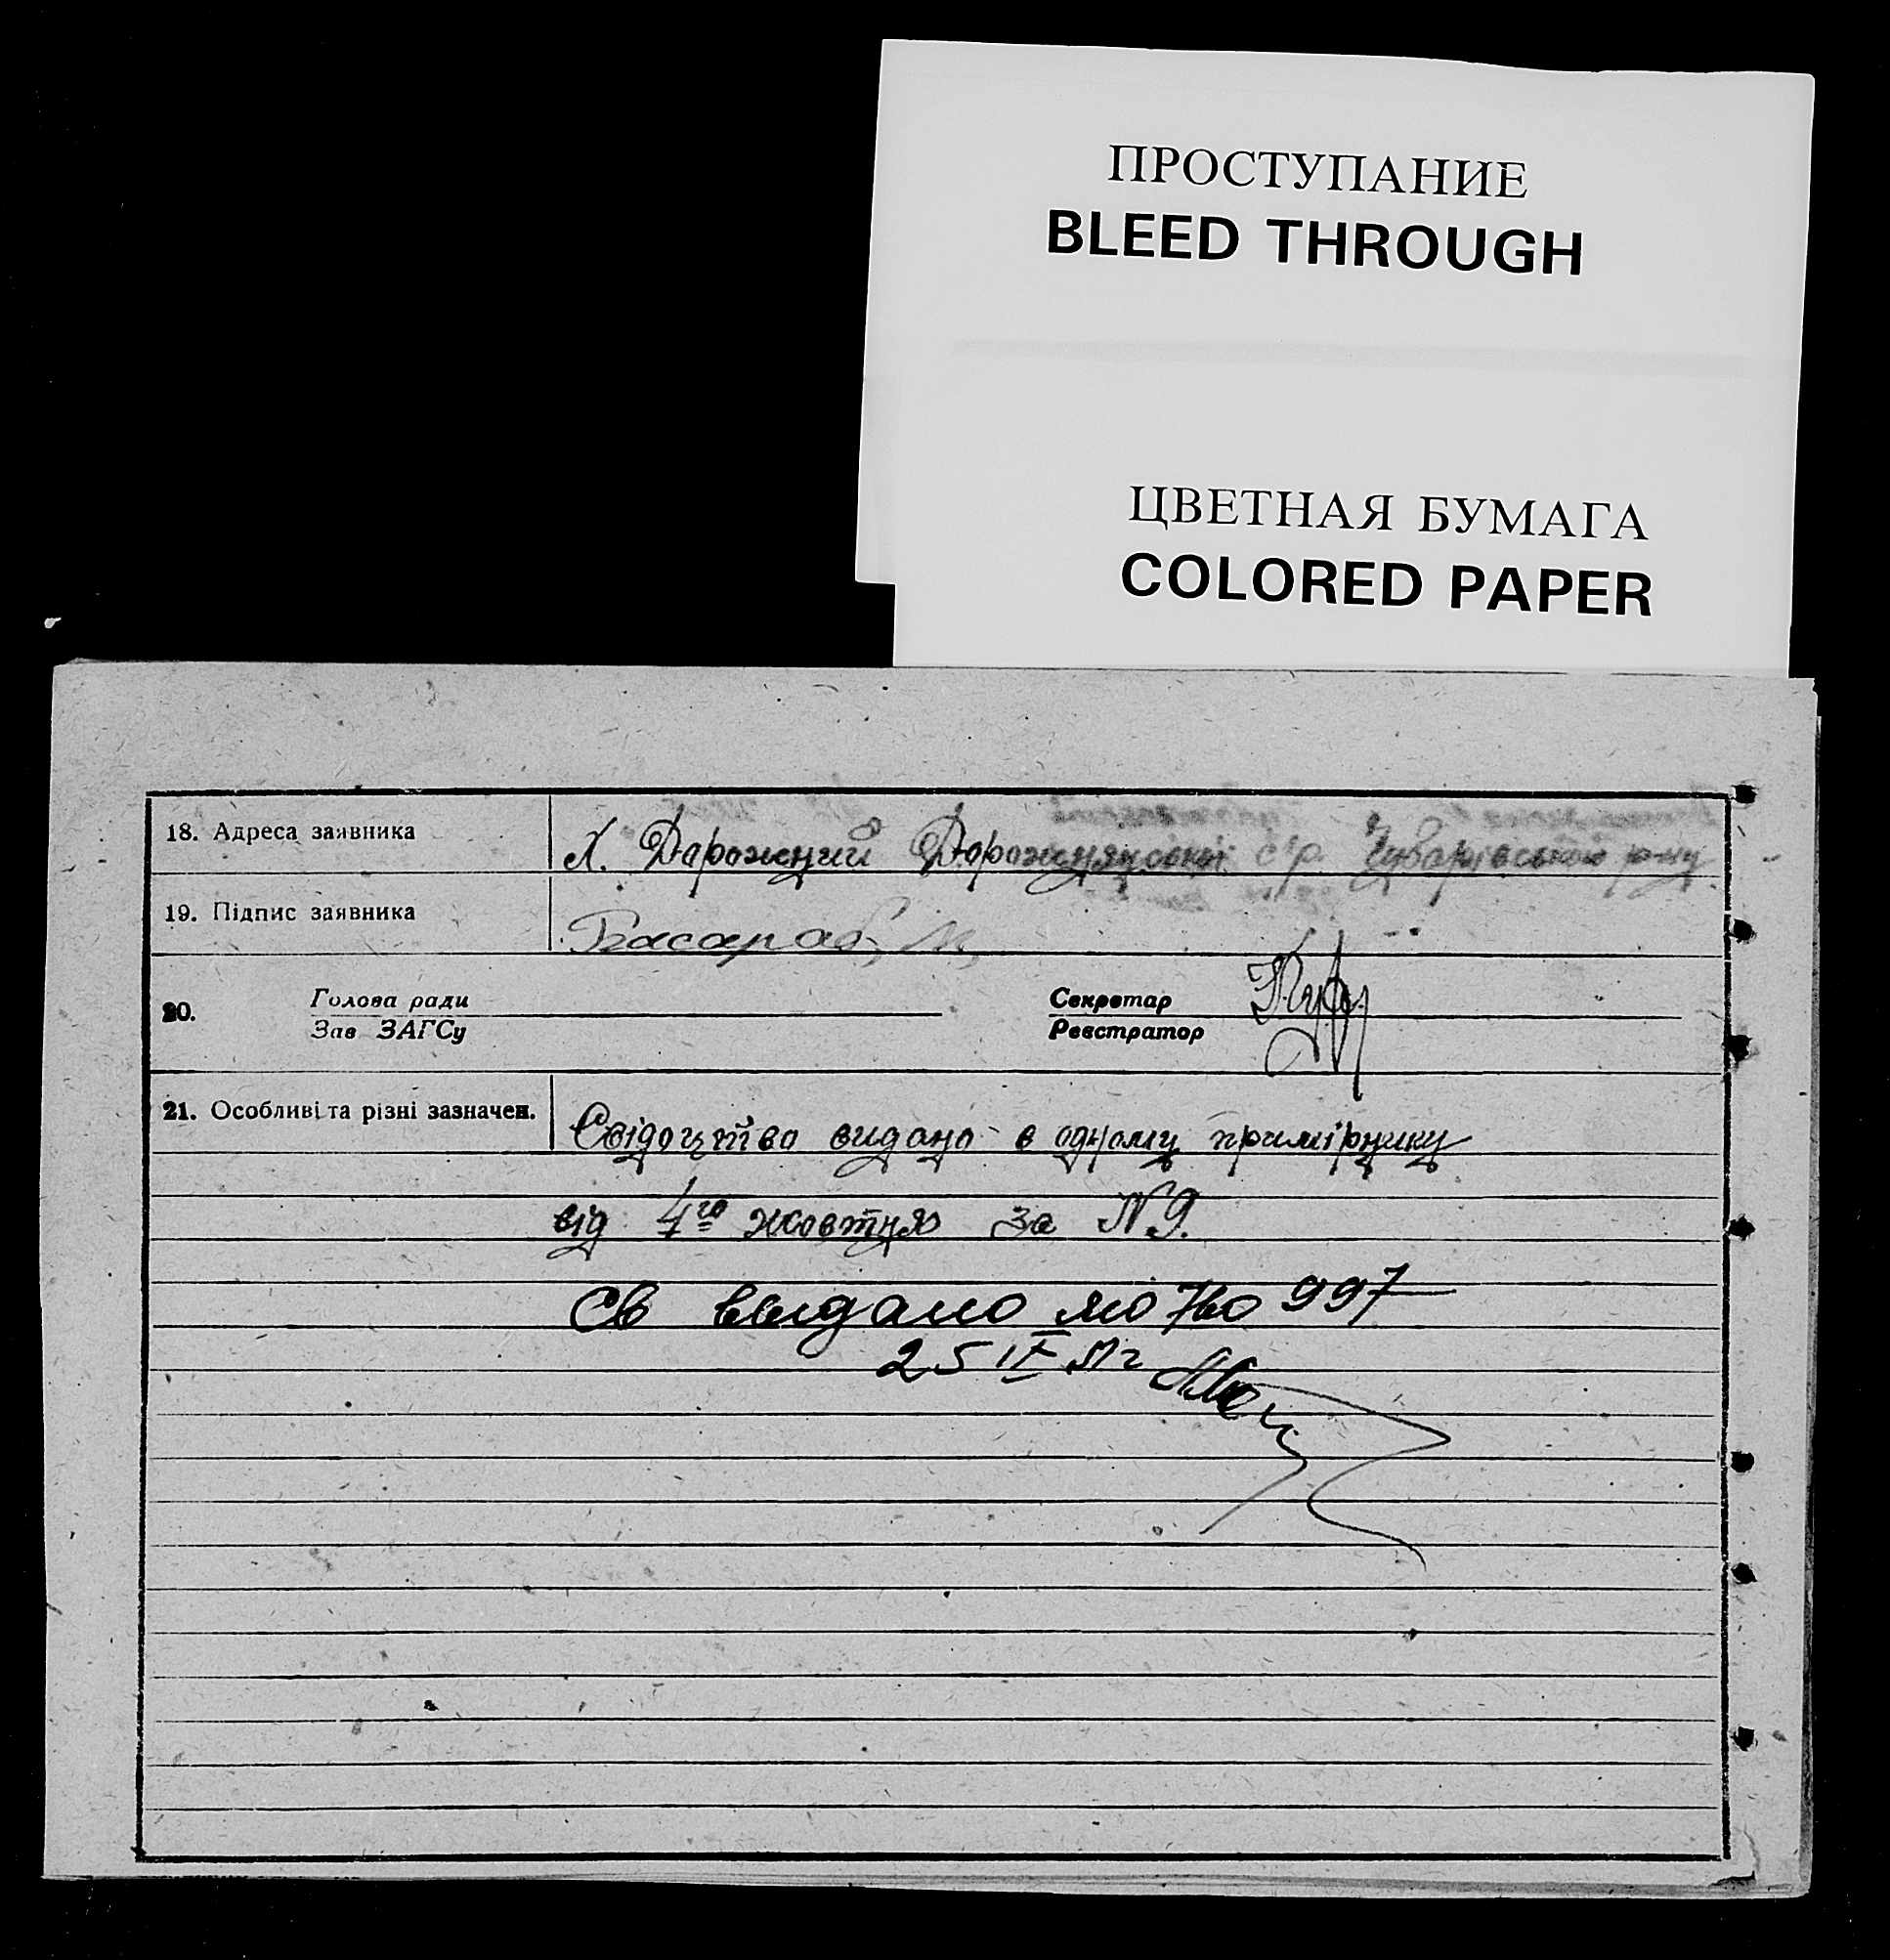 ПРОСТУПАНИЕ
BLEED THROUGH
ЦВЕТНАЯ БУМАГА
COLORED PAPER
18. Адреса заявника Х. Дарожний Дорожнянської с/р. Чубарівського р-ну
19. Підпис заявника Басараб, М,
20. Голова ради Секретар
Зав ЗАГСу Реєстратор
21. Особливі та різні зазначен. Свідоцтво видано в одному примірнику
від 4го жовтня за N 9.
Св выдано 997
25 IX 51 г